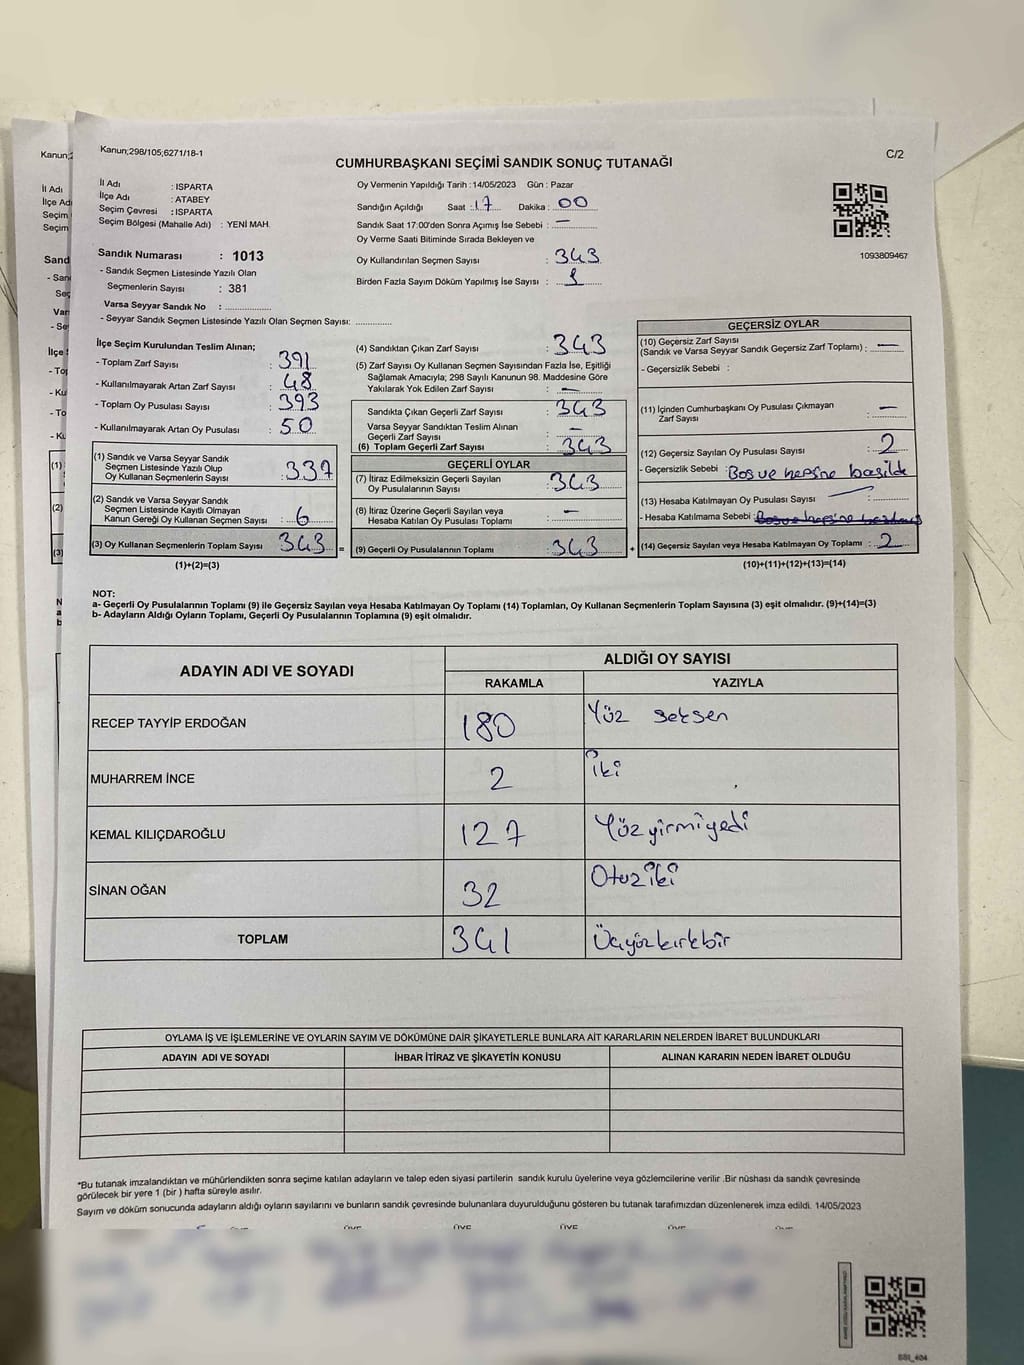 Kanun;298/105;6271/18-1
CUMHURBAŞKANI SEÇİMİ SANDIK SONUÇ TUTANAĞI
C/2
İl Adı : ISPARTA
İlçe Adı : ATABEY
Seçim Çevresi : ISPARTA
Seçim Bölgesi (Mahalle Adı) : YENİ MAH.
Sandık Numarası : 1013
- Sandık Seçmen Listesinde Yazılı Olan
Seçmenlerin Sayısı : 381
Varsa Seyyar Sandık No :
- Seyyar Sandık Seçmen Listesinde Yazılı Olan Seçmen Sayısı:
Oy Vermenin Yapıldığı Tarih : 14/05/2023 Gün : Pazar
Sandığın Açıldığı Saat : 17 Dakika : 00
Sandık Saat 17:00'den Sonra Açımış İse Sebebi : —
Oy Verme Saati Bitiminde Sırada Bekleyen ve
Oy Kullandırılan Seçmen Sayısı : 343
Birden Fazla Sayım Döküm Yapılmış İse Sayısı : 1
1093809467
İlçe Seçim Kurulundan Teslim Alınan;
- Toplam Zarf Sayısı : 391
- Kullanılmayarak Artan Zarf Sayısı : 48
- Toplam Oy Pusulası Sayısı : 393
- Kullanılmayarak Artan Oy Pusulası : 50
(1) Sandık ve Varsa Seyyar Sandık
Seçmen Listesinde Yazılı Olup
Oy Kullanan Seçmenlerin Sayısı : 337
(2) Sandık ve Varsa Seyyar Sandık
Seçmen Listesinde Kayıtlı Olmayan
Kanun Gereği Oy Kullanan Seçmen Sayısı : 6
(3) Oy Kullanan Seçmenlerin Toplam Sayısı : 343
(1)+(2)=(3)
(4) Sandıktan Çıkan Zarf Sayısı : 343
(5) Zarf Sayısı Oy Kullanan Seçmen Sayısından Fazla İse, Eşitliği
Sağlamak Amacıyla; 298 Sayılı Kanunun 98. Maddesine Göre
Yakılarak Yok Edilen Zarf Sayısı : —
Sandıkta Çıkan Geçerli Zarf Sayısı : 343
Varsa Seyyar Sandıktan Teslim Alınan
Geçerli Zarf Sayısı : —
(6) Toplam Geçerli Zarf Sayısı : 343
GEÇERLİ OYLAR
(7) İtiraz Edilmeksizin Geçerli Sayılan
Oy Pusulalarının Sayısı : 343
(8) İtiraz Üzerine Geçerli Sayılan veya
Hesaba Katılan Oy Pusulası Toplamı : —
= (9) Geçerli Oy Pusulalarının Toplamı : 343
GEÇERSİZ OYLAR
(10) Geçersiz Zarf Sayısı
(Sandık ve Varsa Seyyar Sandık Geçersiz Zarf Toplamı) : —
- Geçersizlik Sebebi :
(11) İçinden Cumhurbaşkanı Oy Pusulası Çıkmayan
Zarf Sayısı : —
(12) Geçersiz Sayılan Oy Pusulası Sayısı : 2
- Geçersizlik Sebebi : Boş ve hepsine basıldı
(13) Hesaba Katılmayan Oy Pusulası Sayısı : —
- Hesaba Katılmama Sebebi :
+ (14) Geçersiz Sayılan veya Hesaba Katılmayan Oy Toplamı : 2
(10)+(11)+(12)+(13)=(14)
NOT:
a- Geçerli Oy Pusulalarının Toplamı (9) ile Geçersiz Sayılan veya Hesaba Katılmayan Oy Toplamı (14) Toplamları, Oy Kullanan Seçmenlerin Toplam Sayısına (3) eşit olmalıdır. (9)+(14)=(3)
b- Adayların Aldığı Oyların Toplamı, Geçerli Oy Pusulalarının Toplamına (9) eşit olmalıdır.
ADAYIN ADI VE SOYADI
ALDIĞI OY SAYISI
RAKAMLA YAZIYLA
RECEP TAYYİP ERDOĞAN 180 Yüz seksen
MUHARREM İNCE 2 iki
KEMAL KILIÇDAROĞLU 127 Yüzyirmiyedi
SİNAN OĞAN 32 Otuziki
TOPLAM 341 Üçyüzkırkbir
OYLAMA İŞ VE İŞLEMLERİNE VE OYLARIN SAYIM VE DÖKÜMÜNE DAİR ŞİKAYETLERLE BUNLARA AİT KARARLARIN NELERDEN İBARET BULUNDUKLARI
ADAYIN ADI VE SOYADI İHBAR İTİRAZ VE ŞİKAYETİN KONUSU ALINAN KARARIN NEDEN İBARET OLDUĞU
*Bu tutanak imzalandıktan ve mühürlendikten sonra seçime katılan adayların ve talep eden siyasi partilerin sandık kurulu üyelerine veya gözlemcilerine verilir .Bir nüshası da sandık çevresinde
görülecek bir yere 1 (bir ) hafta süreyle asılır.
Sayım ve döküm sonucunda adayların aldığı oyların sayılarını ve bunların sandık çevresinde bulunanlara duyurulduğunu gösteren bu tutanak tarafımızdan düzenlenerek imza edildi. 14/05/2023